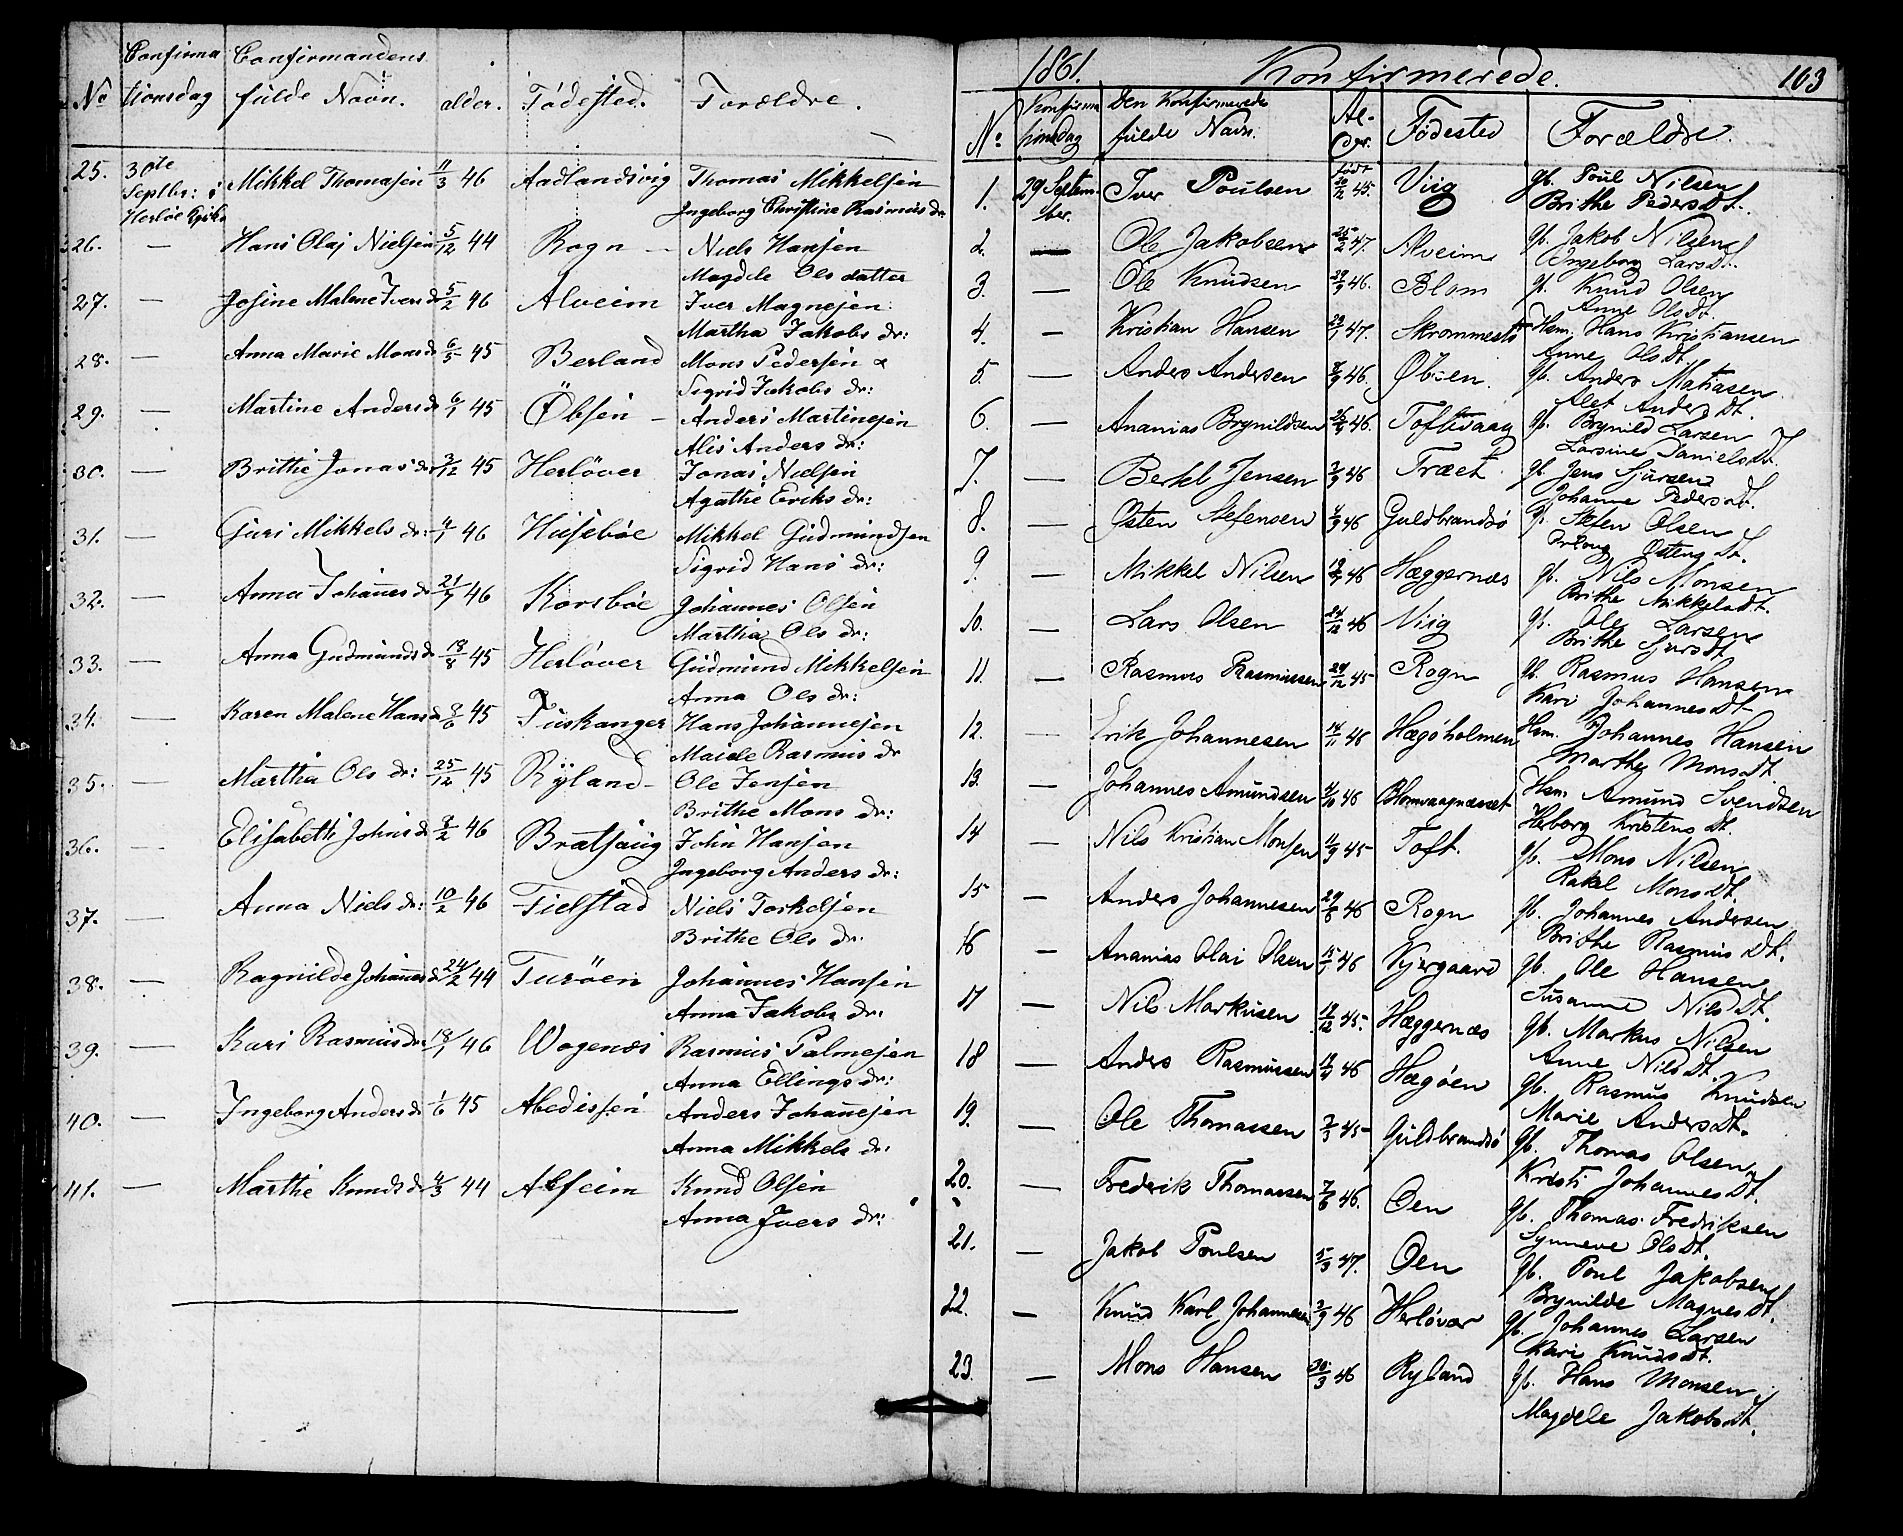 Confirma Confirmandens
No tionsdag fulde Navn. alder. Fødested. Forældre.
25. 30te Septbr: i Herlöe Kirke Mikkel Thomasen 11/3 46 Aadlandsvig Thomas Mikkelsen
Ingeborg Christine Rasmus dr
26. — Hans Olaj Nielsen 5/12 44 Rogn — Niels Hansen
Magdele Ols datter
27. — Josine Malene Ivers dr 5/2 46 Alveim Iver Magnesen.
Martha Jakobs dr:
28. — Anna Marie Mons dr 6/5 45 Berland Mons Pedersen &
Sigrid Jakobs dr:
29. — Martine Anders dr 6/1 45 Öbsen — Anders Martinesen
Alis Anders dr:
30. — Brithe Jonas dr 3/12 45 Herlöver Jonas Nielsen
Agathe Eriks dr:
31. — Guri Mikkels dr: 4/1 46 Huseböe Mikkel Gudmundsen
Sigrid Hans dr:
32. — Anna Johannes dr 21/7 46 Korsböe Johannes Olsen
Martha Ols dr:
33. — Anna Gudmunds dr 18/8 45 Herlöver Gudmund Mikkelsen
Anna Ols dr:
34. — Karen Malene Hans dr 9/6 45 Tuskanger Hans Johannesen
Rasmus dr
35. — Martha Ols dr: 25/12 45 Ryland — Ole Jensen
Brithe Mons dr:
36. — Elisabeth Johns dr 8/2 46 Brathaug John Hansen
Ingeborg Anders dr:
37. — Anna Niels dr: 10/2 46 Fielstad Niels Torkelsen
Brithe Ols dr.
38. — Ragnilde Johannes dr 24/2 44 Turöen Johannes Hansen
Anna Jakobs dr:
39. — Kari Rasmus dr 18/1 46 Wogenes Rasmus Palmesen
Anna Ellings dr:
40. — Ingeborg Anders dr 1/6 45 Anders Johannesen
Anna Mikkels dr:
41. — Marthe Knuds dr 4/3 44 Alfeim Knud Olsen
Anna Ivers dr:
1861. Konfirmerede. 163
No Konfirma tionsdag Den Konfirmerede fulde Navn. Al- der. Fødested Forældre.
1. 29 Septem- ber. Iver Poulsen født 20/12 45. Viig gb. Poul Nilsen
Brithe Peders Dt.
2. — Ole Jakobsen 25/2 47. Alveim gb. Jakob Nilsen
Ingeborg Lars Dt.
3. — Ole Knudsen 29/9 46. Blom gb. Knud Olsen
Anne Ols Dt.
4. — Kristian Hansen 23/1 47. Hsm. Hans Kristiansen
Anne Ols Dt.
5. — Anders Andersen 8/9 46. gb. Anders Matiasen
Alet Anders Dt.
6. — Ananias Brynildsen 46. Toftevaag gb. Brynild Larsen
Larsine Daniels Dt.
7. — Berkl Jensen 2/9 46 Træet. gb. Jens Sjursen
Johanne Peders Dt.
8. — Østen Stefensen 4/9 46 Guldbrandsø gb. Stefen Olsen
Østens Dt.
9. — Mikkel Nilsen 46 Hæggernæs gb. Nils Monsen
Brithe Mikkels Dt.
10. — Lars Olsen 24/12 46 Viig gb. Ole Larsen
Brithe Sjurs Dt.
11. — Rasmus Rasmussen 29/12 45 Rogn gb. Rasmus Hansen
Kari Johannes Dt.
12. — Erik Johannesen 14/11 46 Hægøholmen Hsm. Johannes Hansen
Marthe Mons Dt.
13. — Johannes Amundsen 4/10 46 Blomvaagnæsset Hsm. Amund Svendsen
Herborg Kristens Dt.
14 — Nils Kristian Monsen 11/9 45 Toft. gb. Mons Nilsen
Rakel Mons Dt.
15 — Anders Johannesen 29/6 46 Rogn gb. Johannes Andersen
Brithe Rasmus Dt.
16 — Ananias Olai Olsen 46 Kjergaard gb. Ole Hansen
Susanne Nils Dt.
17 — Nils Markusen 18/12 45. Hæggernæs gb. Markus Nilsen
Anne Nils Dt.
18 — Anders Rasmussen 19/4 46 Hægøen gb. Rasmus Knudsen
Marie Anders Dt.
19. — Ole Thomassen 2/3 45 Guldbrandsø gb. Thomas Olsen
Kristi Johannes Dt.
20. — Fredrik Thomassen 7/6 46. Oen gb. Thomas Fredriksen
Synneve Ols Dt.
21. — Jakob Poulsen 5/3 47. Oen gb. Poul Jakobsen
Brynilde Magnes Dt.
22. — Knud Karl Johannesen 2/9 46 Herløvær gb. Johannes Larsen
Kari Knuds Dt.
23. — Mons Hansen 30/3 46 Ryland gb. Hans Monsen
Magdele Jakobs Dt.